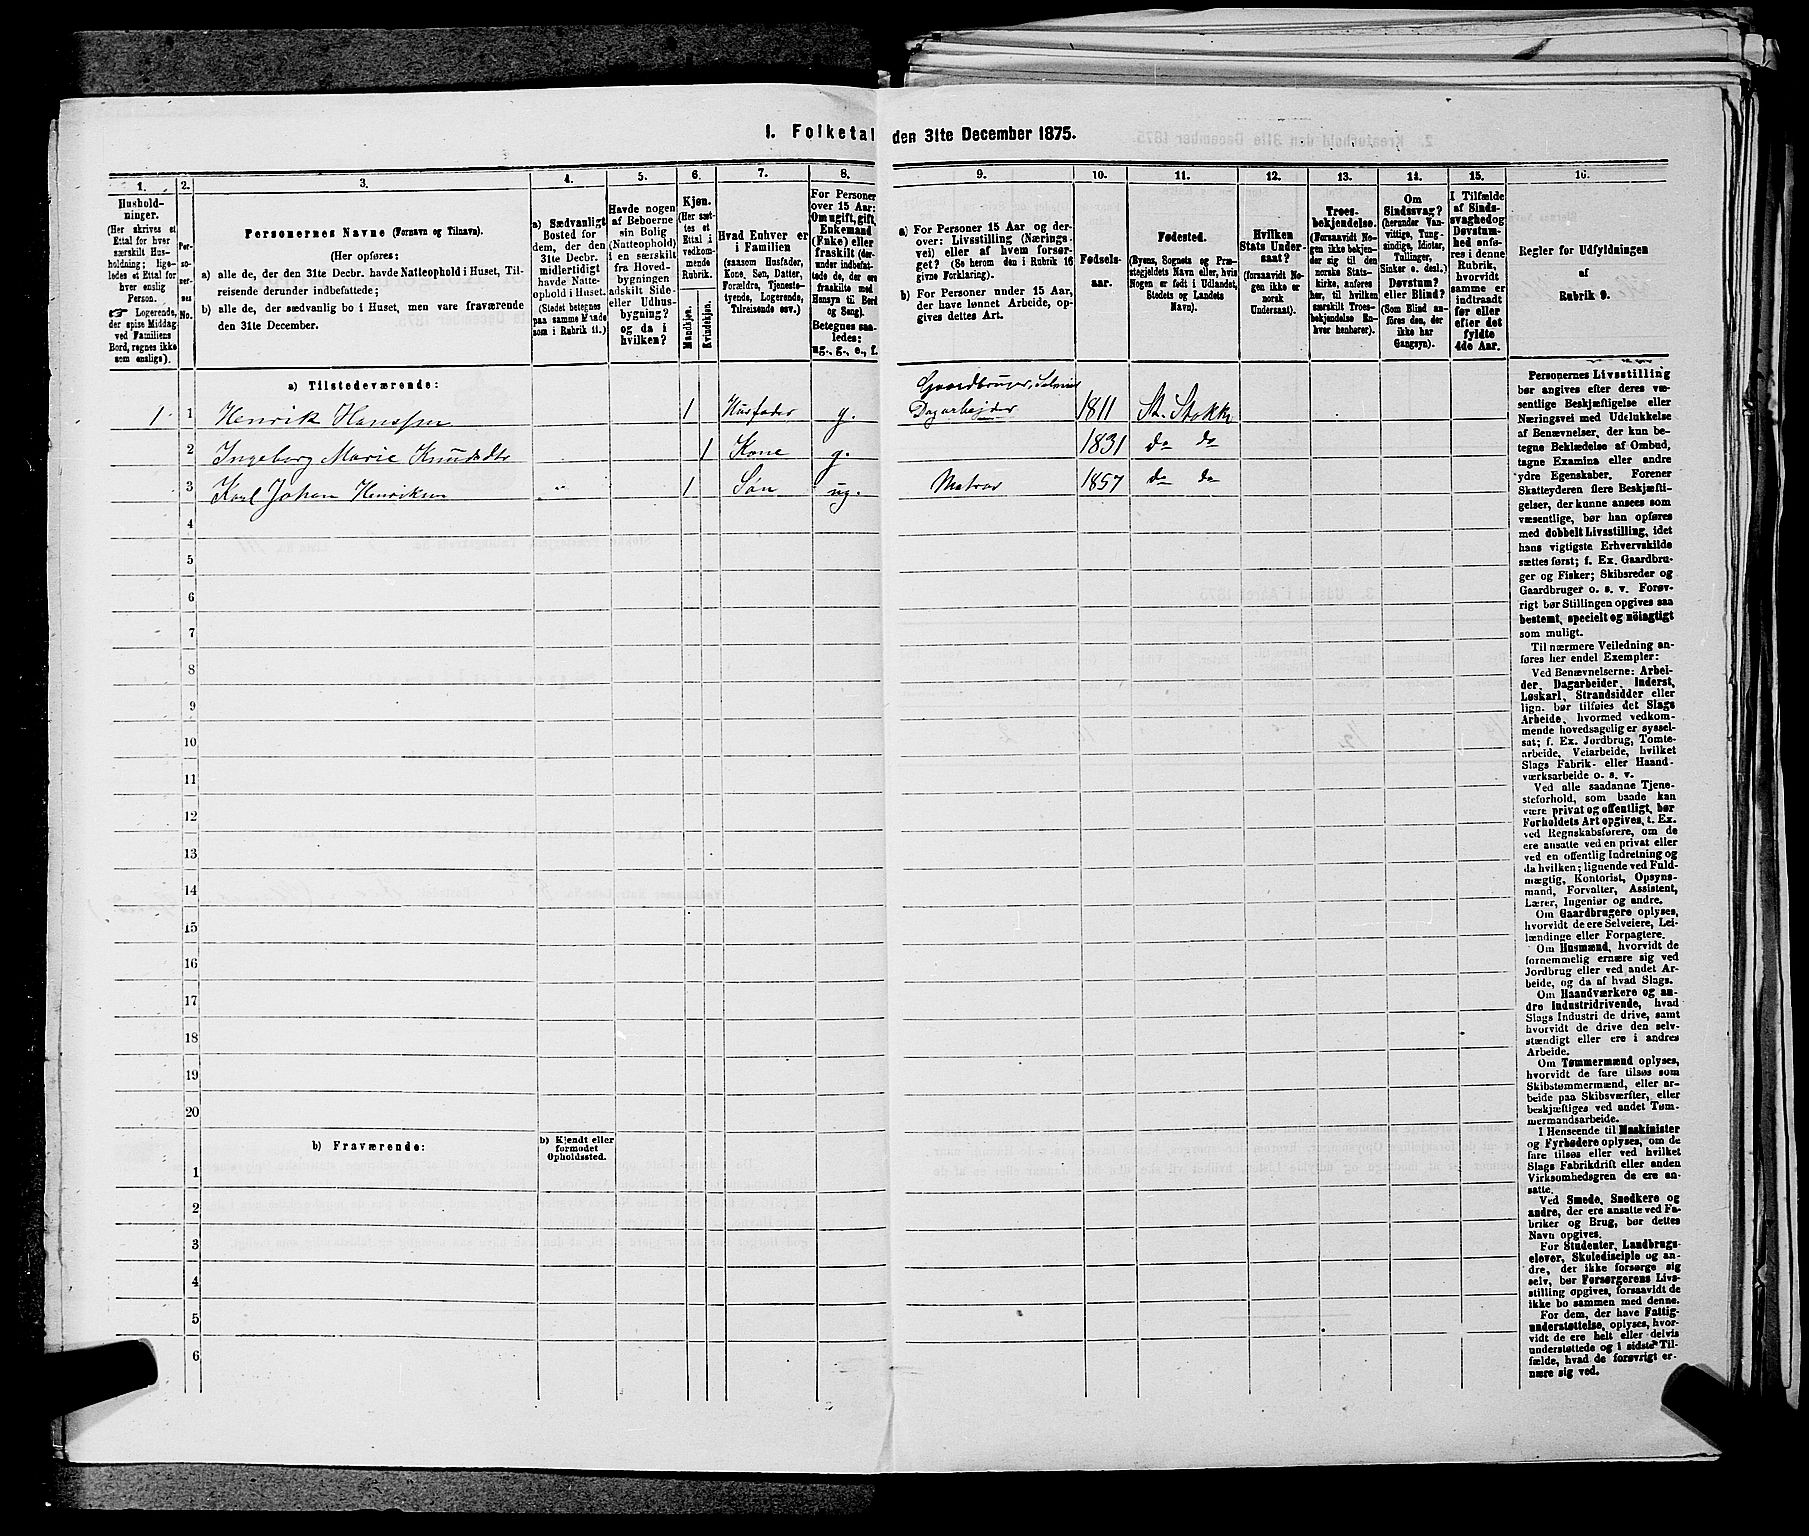 1. Folketal den 31te December 1875.
1.
2.
3.
4.
5.
6.
7.
8.
9.
10.
11.
12.
13.
14.
15.
16.
Hushold-
ninger.
(Her skrives et
Ettal for hver
særskilt Hus-
holdning; lige-
ledes et Ettal for
hver enslig
Person.
☞ Logerende,
der spise Middag
ved Familiens
Bord, regnes ikke
som enslige).
Per-
so-
ner-
nes
No.
Personernes Navne (Fornavn og Tilnavn).
(Her opføres:
a) alle de, der den 31te Decbr. havde Natteophold i Huset, Til-
reisende derunder indbefattede;
b) alle de, der sædvanlig bo i Huset, men vare fraværende
den 31te December.
a) Sædvanligt
Bosted for
dem, der den
31te Decbr.
midlertidigt
havde Natte-
ophold i Huset.
(Stedet betegnes
paa samme Maade
som i Rubrik 11.)
Havde nogen
af Beboerne
sin Bolig
(Natteophold)
i en særskilt
fra Hoved-
bygningen
adskilt Side-
eller Udhus-
bygning?
og da i
hvilken?
Kjøn.
(Her sæt-
tes et
Ettal i
vedkom-
mende
Rubrik.
Mandkjøn.
Kvindekjøn.
Hvad Enhver er
i Familien
(saasom Husfader,
Kone, Søn, Datter,
Forældre, Tjeneste-
tyende, Logerende,
Tilreisende osv.)
For Personer
over 15 Aar:
Om ugift, gift,
Enkemand
(Enke) eller
fraskilt (der-
under indbefat-
tede de, der ere
fraskilte med
Hensyn til Bord
og Seng).
Betegnes saa-
ledes:
ug., g., e., f.
a) For Personer 15 Aar og der-
over: Livsstilling (Nærings-
vei) eller af hvem forsør-
get? (Se herom den i Rubrik 16
givne Forklaring).
b) For Personer under 15 Aar,
der have lønnet Arbeide, op-
gives dettes Art.
Fødsels-
aar.
Fødested.
(Byens, Sognets og Præ-
stegjeldets Navn eller, hvis
Nogen er født i Udlandet,
Stedets og Landets
Navn).
Hvilken
Stats Under-
saat?
(forsaavidt No-
gen ikke er
norsk
Undersaat).
Troes-
bekjendelse.
(Forsaavidt No-
gen ikke bekjen-
der sig til den
norske Stats-
kirke, anføres
her, til hvilken
særskilt Troes-
bekjendelse En-
hver henhører).
Om
Sindssvag?
(herunder Van-
vittige, Tung-
sindige, Idioter,
Tullinger,
Sinker o. desl.)
Døvstum?
eller Blind?
(Som Blind an-
føres den, der
ikke har
Gangsyn).
I Tilfælde
af Sinds-
svaghed og
Døvstum-
hed anfø-
res i denne
Rubrik,
hvorvidt
samme er
indtraadt
før eller
efter det
fyldte
4de Aar.
Regler for Udfyldningen
af
Rubrik 9.
a) Tilstedeværende:
1 1 Henrik Hanssen 1 Husfader g. Gaardbruger, Selveier
Dagarbejder 1811 St. Stokke
2 Ingeborg Marie Knudsdtr 1 Kone g. 1831 do do
3 Karl Johan Henriksen " 1 Søn ug. Matros 1857 do do
4
5
6
7
8
9
10
11
12
13
14
15
16
17
18
19
20
b) Fraværende:
b) Kjendt eller
formodet
Opholdssted.
1
2
3
4
5
6
Personernes Livsstilling
bør angives efter deres væ-
sentlige Beskjæftigelse eller
Næringsvei med Udelukkelse
af Benævnelser, der kun be-
tegne Beklædelse af Ombud,
tagne Examina eller andre
ydre Egenskaber. Forener
Skatteyderen flere Beskjæfti-
gelser, der kunne ansees som
væsentlige, bør han opføres
med dobbelt Livsstilling, idet
hans vigtigste Erhvervskilde
sættes først; f. Ex. Gaardbru-
ger og Fisker; Skibsreder og
Gaardbruger o. s. v. Forøv-
rigt bør Stillingen opgives saa
bestemt, specielt og nöiagtigt
som muligt.
Til nærmere Veiledning an-
føres her endel Exempler:
Ved Benævnelserne: Arbei-
der, Dagarbeider, Inderst,
Løskarl, Strandsidder eller
lign. bør tilføies det Slags
Arbeide, hvormed vedkom-
mende hovedsagelig er syssel-
sat; f. Ex. Jordbrug, Tomte-
arbeide, Veiarbeide, hvilket
Slags Fabrik- eller Haand-
værksarbeide o. s. v.
Ved alle saadanne Tjene-
steforhold, som baade kan
være privat og offentligt, bør
Forholdets Art opgives, t. Ex.
ved Regnskabsførere, om de
ere ansatte ved en privat eller
ved en offentlig Indretning og
da hvilken; lignende ved Fuld-
mægtig, Kontorist, Opsyns-
mand, Forvalter, Assistent,
Lærer, Ingeniør og andre.
Om Gaardbrugere oplyses,
hvorvidt de ere Selveiere, Lei-
lændinge eller Forpagtere.
Om Husmænd, hvorvidt de
fornemmelig ernære sig ved
Jordbrug eller ved andet Ar-
beide, og da af hvad Slags.
Om Haandværkere og an-
dre Industridrivende, hvad
Slags Industri de drive, samt
hvorvidt de drive den selv-
stændigt eller ere i andres
Arbeide.
Om Tømmermænd oplyses,
hvorvidt de fare tilsøs som
Skibstømmermænd, eller ar-
beide paa Skibsværfter, eller
beskjæftiges ved andet Tøm-
mermandsarbeide.
I Henseende til Maskinister
og Fyrbødere oplyses, om de
fare tilsøs eller ved hvilket
Slags Fabrikdrift eller anden
Virksomhedsgren de ere an-
satte.
Ved Smede, Snedkere og
andre, der ere ansatte ved Fa-
briker og Brug, bør dettes
Navn opgives.
For Studenter, Landbrugs-
elever, Skoledisciple og an-
dre, der ikke forsørge sig
selv, bør Forsørgerens Livs-
stilling opgives, forsaavidt de
ikke bo sammen med denne.
For dem, der have Fattig-
understøttelse, oplyses, hvor-
vidt de ere helt eller delvis
understøttede og i sidste Til-
fælde, hvad de forøvrigt er-
nære sig ved.